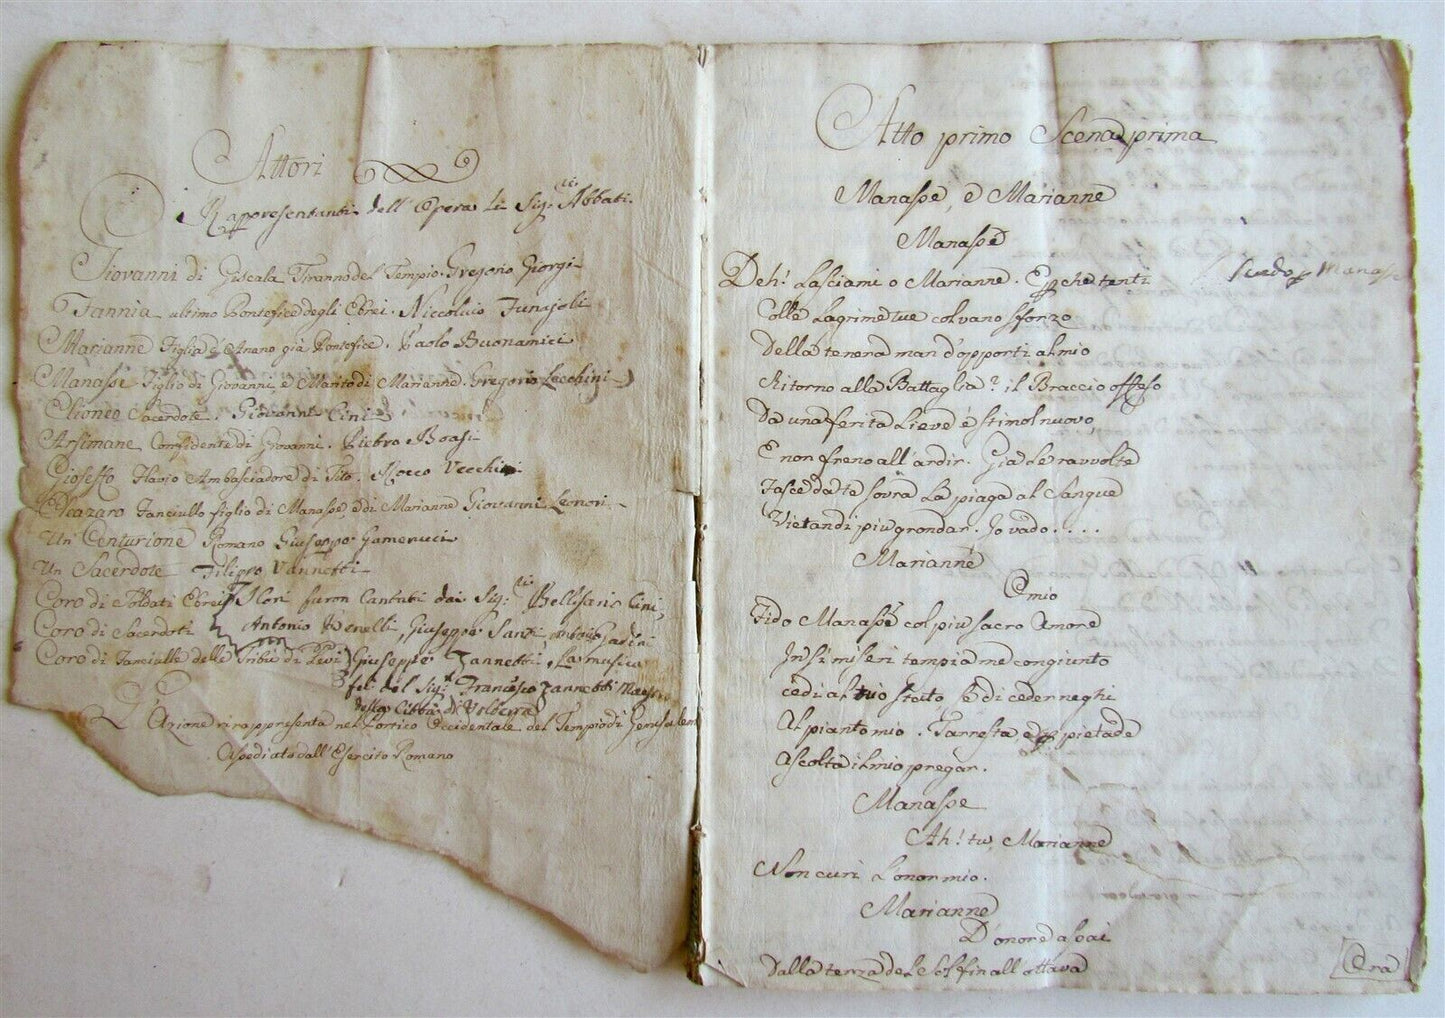 Attori
Rappresentanti dell' Opera li Sig.ri Abbati.
Giovanni di Giscala Tiranno del Tempio. Gregorio Giorgi
Fannia ultimo Pontefice degli Ebrei. Niccoluio Funajoli
Marianne Figlia d'Anano già Pontefice. Paolo Buonamici
Manasse Figlio di Giovanni, e Marito di Marianne. Gregorio Lecchini
Elioneo Sacerdote. Giovanni Cini
Arsimane Confidente di Giovanni. Pietro Boasi
Gioseffo Flavio Ambasciadore di Tito. Rocco Vecchi
Eleazaro Fanciullo figlio di Manasse, e di Marianne Giovanni Leonori
Un Centurione Romano Giuseppe Gamerucci
Un Sacerdote Filippo Vannetti
Coro di Soldati Ebrei I Cori furon Cantati dai Sig:ri Bellisario Cini,
Coro di Sacerdoti Antonio Venelli, Giuseppe Santi,
Coro di Fanciulle della Tribù di Levi Giuseppe Zannetti, La musica
fu del Sig.r Francesco Zannetti Maestro
della Città di Volterra
L'Azione si rappresenta nel Portico Occidentale del Tempio di Gerusalem
Assediata dall' Esercito Romano
Atto primo Scena prima
Manasse, e Marianne
Manasse
Deh! Lasciami o Marianne. E p che tenti
Scudo p Manasse
Colle Lagrime tue col vano sforzo
Della tenera man d'opporti al mio
Ritorno alla Battaglia? il Braccio offeso
Da una ferita Lieve è stimol nuovo,
E non freno all' ardir. Già le ravvolte
Fasce da te sovra La piaga al Sangue
Vietan di più grondar. Io vado....
Marianne
O mio
Fido Manasse col più sacro Amore
In sì miseri tempi a me congiunto
cedi al tuo stato, se di ceder neghi
Al pianto mio. T'arresta, e p pietade
Ascolta il mio pregar.
Manasse
Ah! tu, Marianne
Non curi L'onor mio.
Marianne
D'onore assai
Dalla terza del Sol fin all' ottava
Ora